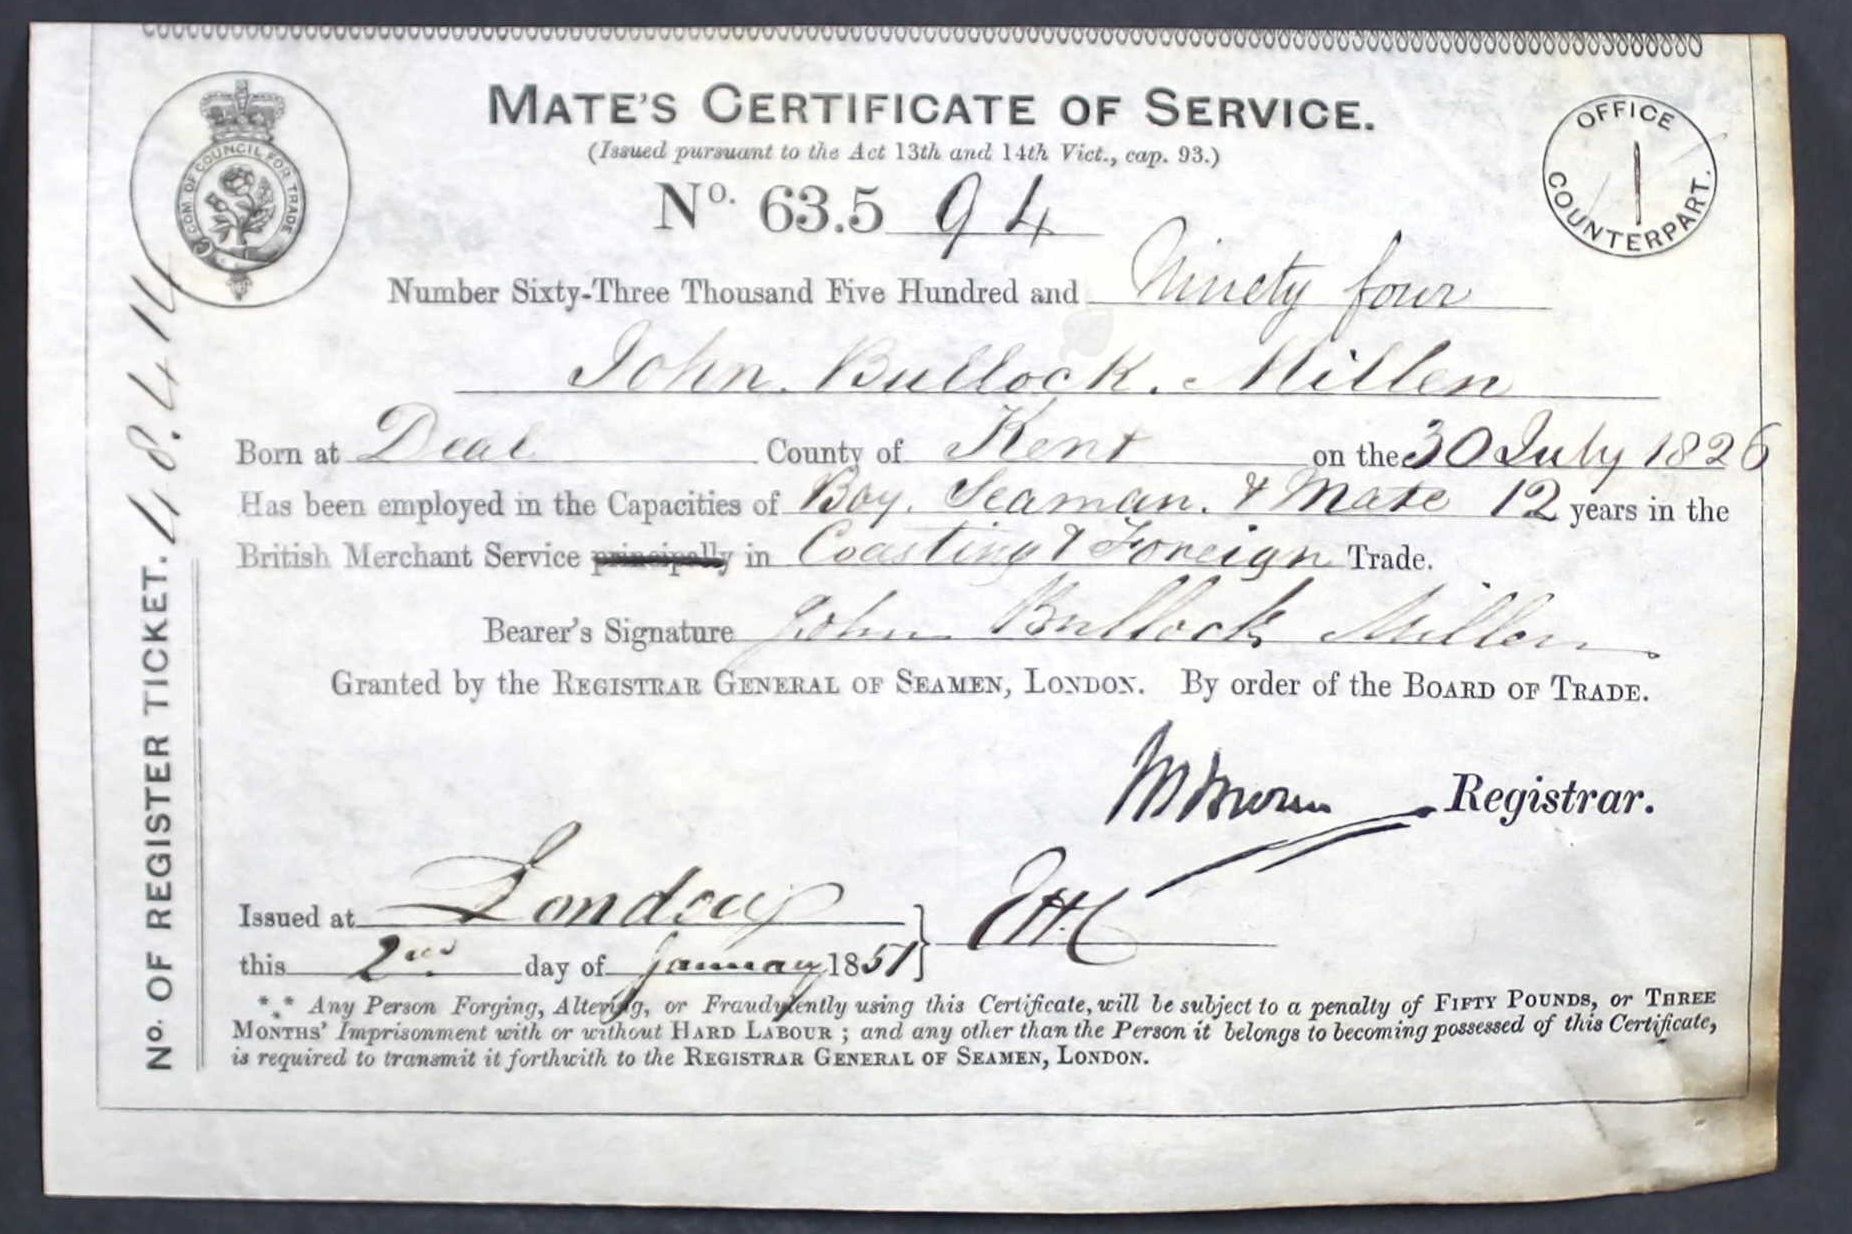 MATE'S CERTIFICATE OF SERVICE.
(Issued pursuant to the Act 13th and 14th Vict., cap. 93.)
COM. OF COUNCIL FOR TRADE
OFFICE
COUNTERPART.
No. 63.5 94
Number Sixty-Three Thousand Five Hundred and Ninety four
John. Bullock. Millen
Born at Deal County of Kent on the 30 July 1826
Has been employed in the Capacities of Boy. Seaman. & Mate 12 years in the
British Merchant Service principally in Coasting & Foreign Trade.
Bearer's Signature John Bullock Millen
Granted by the REGISTRAR GENERAL OF SEAMEN, LONDON. By order of the BOARD OF TRADE.
Registrar.
Issued at London
this 2nd day of January 1851
*** Any Person Forging, Altering, or Fraudulently using this Certificate, will be subject to a penalty of FIFTY POUNDS, or THREE
MONTHS' Imprisonment with or without HARD LABOUR ; and any other than the Person it belongs to becoming possessed of this Certificate,
is required to transmit it forthwith to the REGISTRAR GENERAL OF SEAMEN, LONDON.
No. OF REGISTER TICKET. 48.414